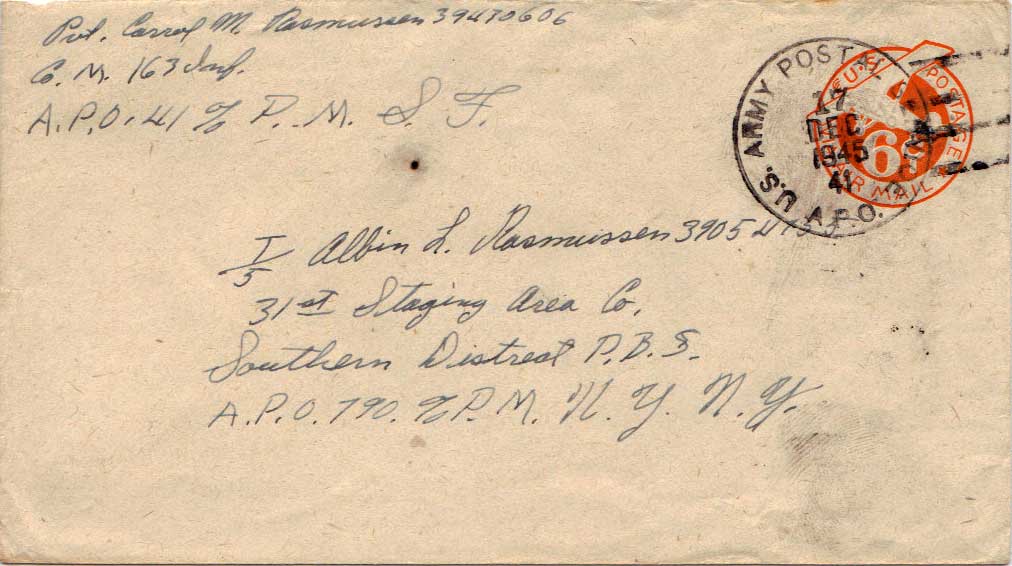 Pvt. Carrol M. Rasmussen 39470606
Co. M. 163 Inf.
A.P.O. 41 % P. M. S. F.
U.S. ARMY POSTAL
A.P.O.
17
DEC
1945
41
U.S. POSTAGE
6¢
AIR MAIL
T/5 Albin L. Rasmussen
31st Staging Area Co.
Southern Distreat P.B.S.
A.P.O. 790. % P. M. N. Y. N. Y.